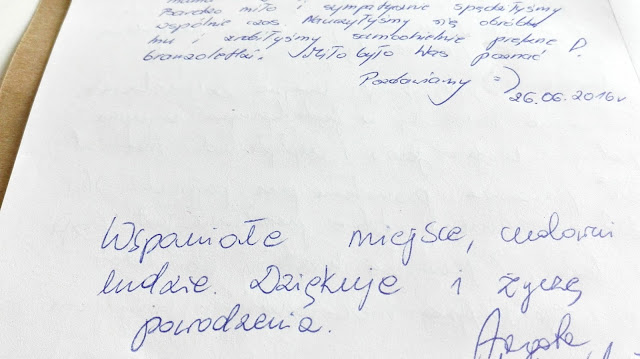 Bardzo miło i sympatycznie spędziłyśmy
wspólnie czas. Nauczyłyśmy się obróbki
mu i zrobiłyśmy samodzielnie piękne P.
bransoletki. Miło było Was poznać
Pozdawiamy =)
26.06.2016r
Wspaniałe miejsce, cudowni
ludzie. Dziękuje i życzę
powodzenia.